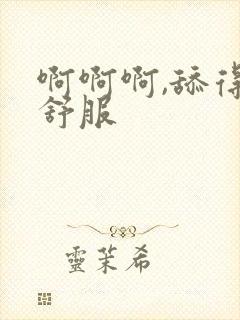 啊啊啊,舔得
舒服
靈茉希